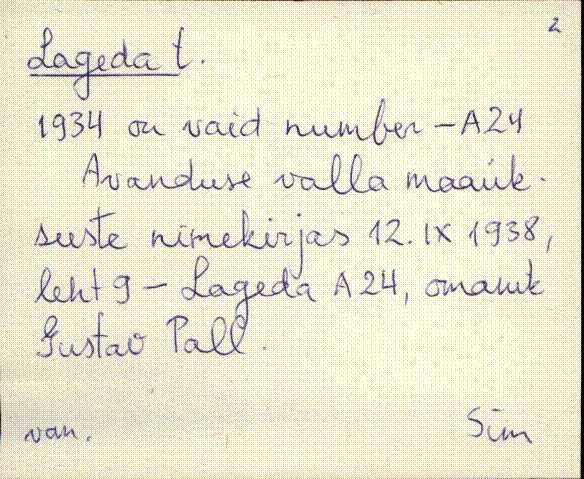 2
Lageda t.
1934 on vaid number - A24
Avanduse valla maaük-
suste nimekirjas 12. IX 1938,
leht 9 - Lageda A 24, omanik
Gustav Pall.
van. Sim